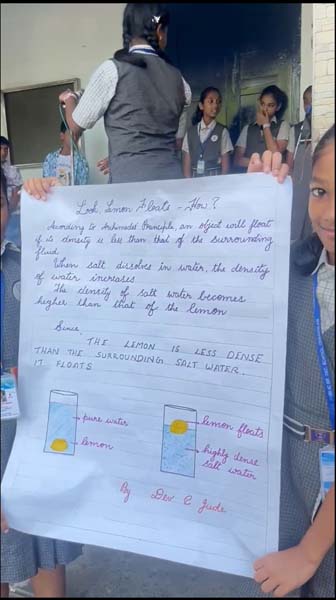 Look, Lemon Floats - How?
According to Archimedes Principle, an object will float
if its density is less than that of the surrounding
fluid.
When salt dissolves in water, the density
of water increases
The density of salt water becomes
higher than that of the lemon
Since,
THE LEMON IS LESS DENSE
THAN THE SURROUNDING SALT WATER.
IT FLOATS
pure water
lemon
lemon floats
highly dense
salt water
By Dev C Jude